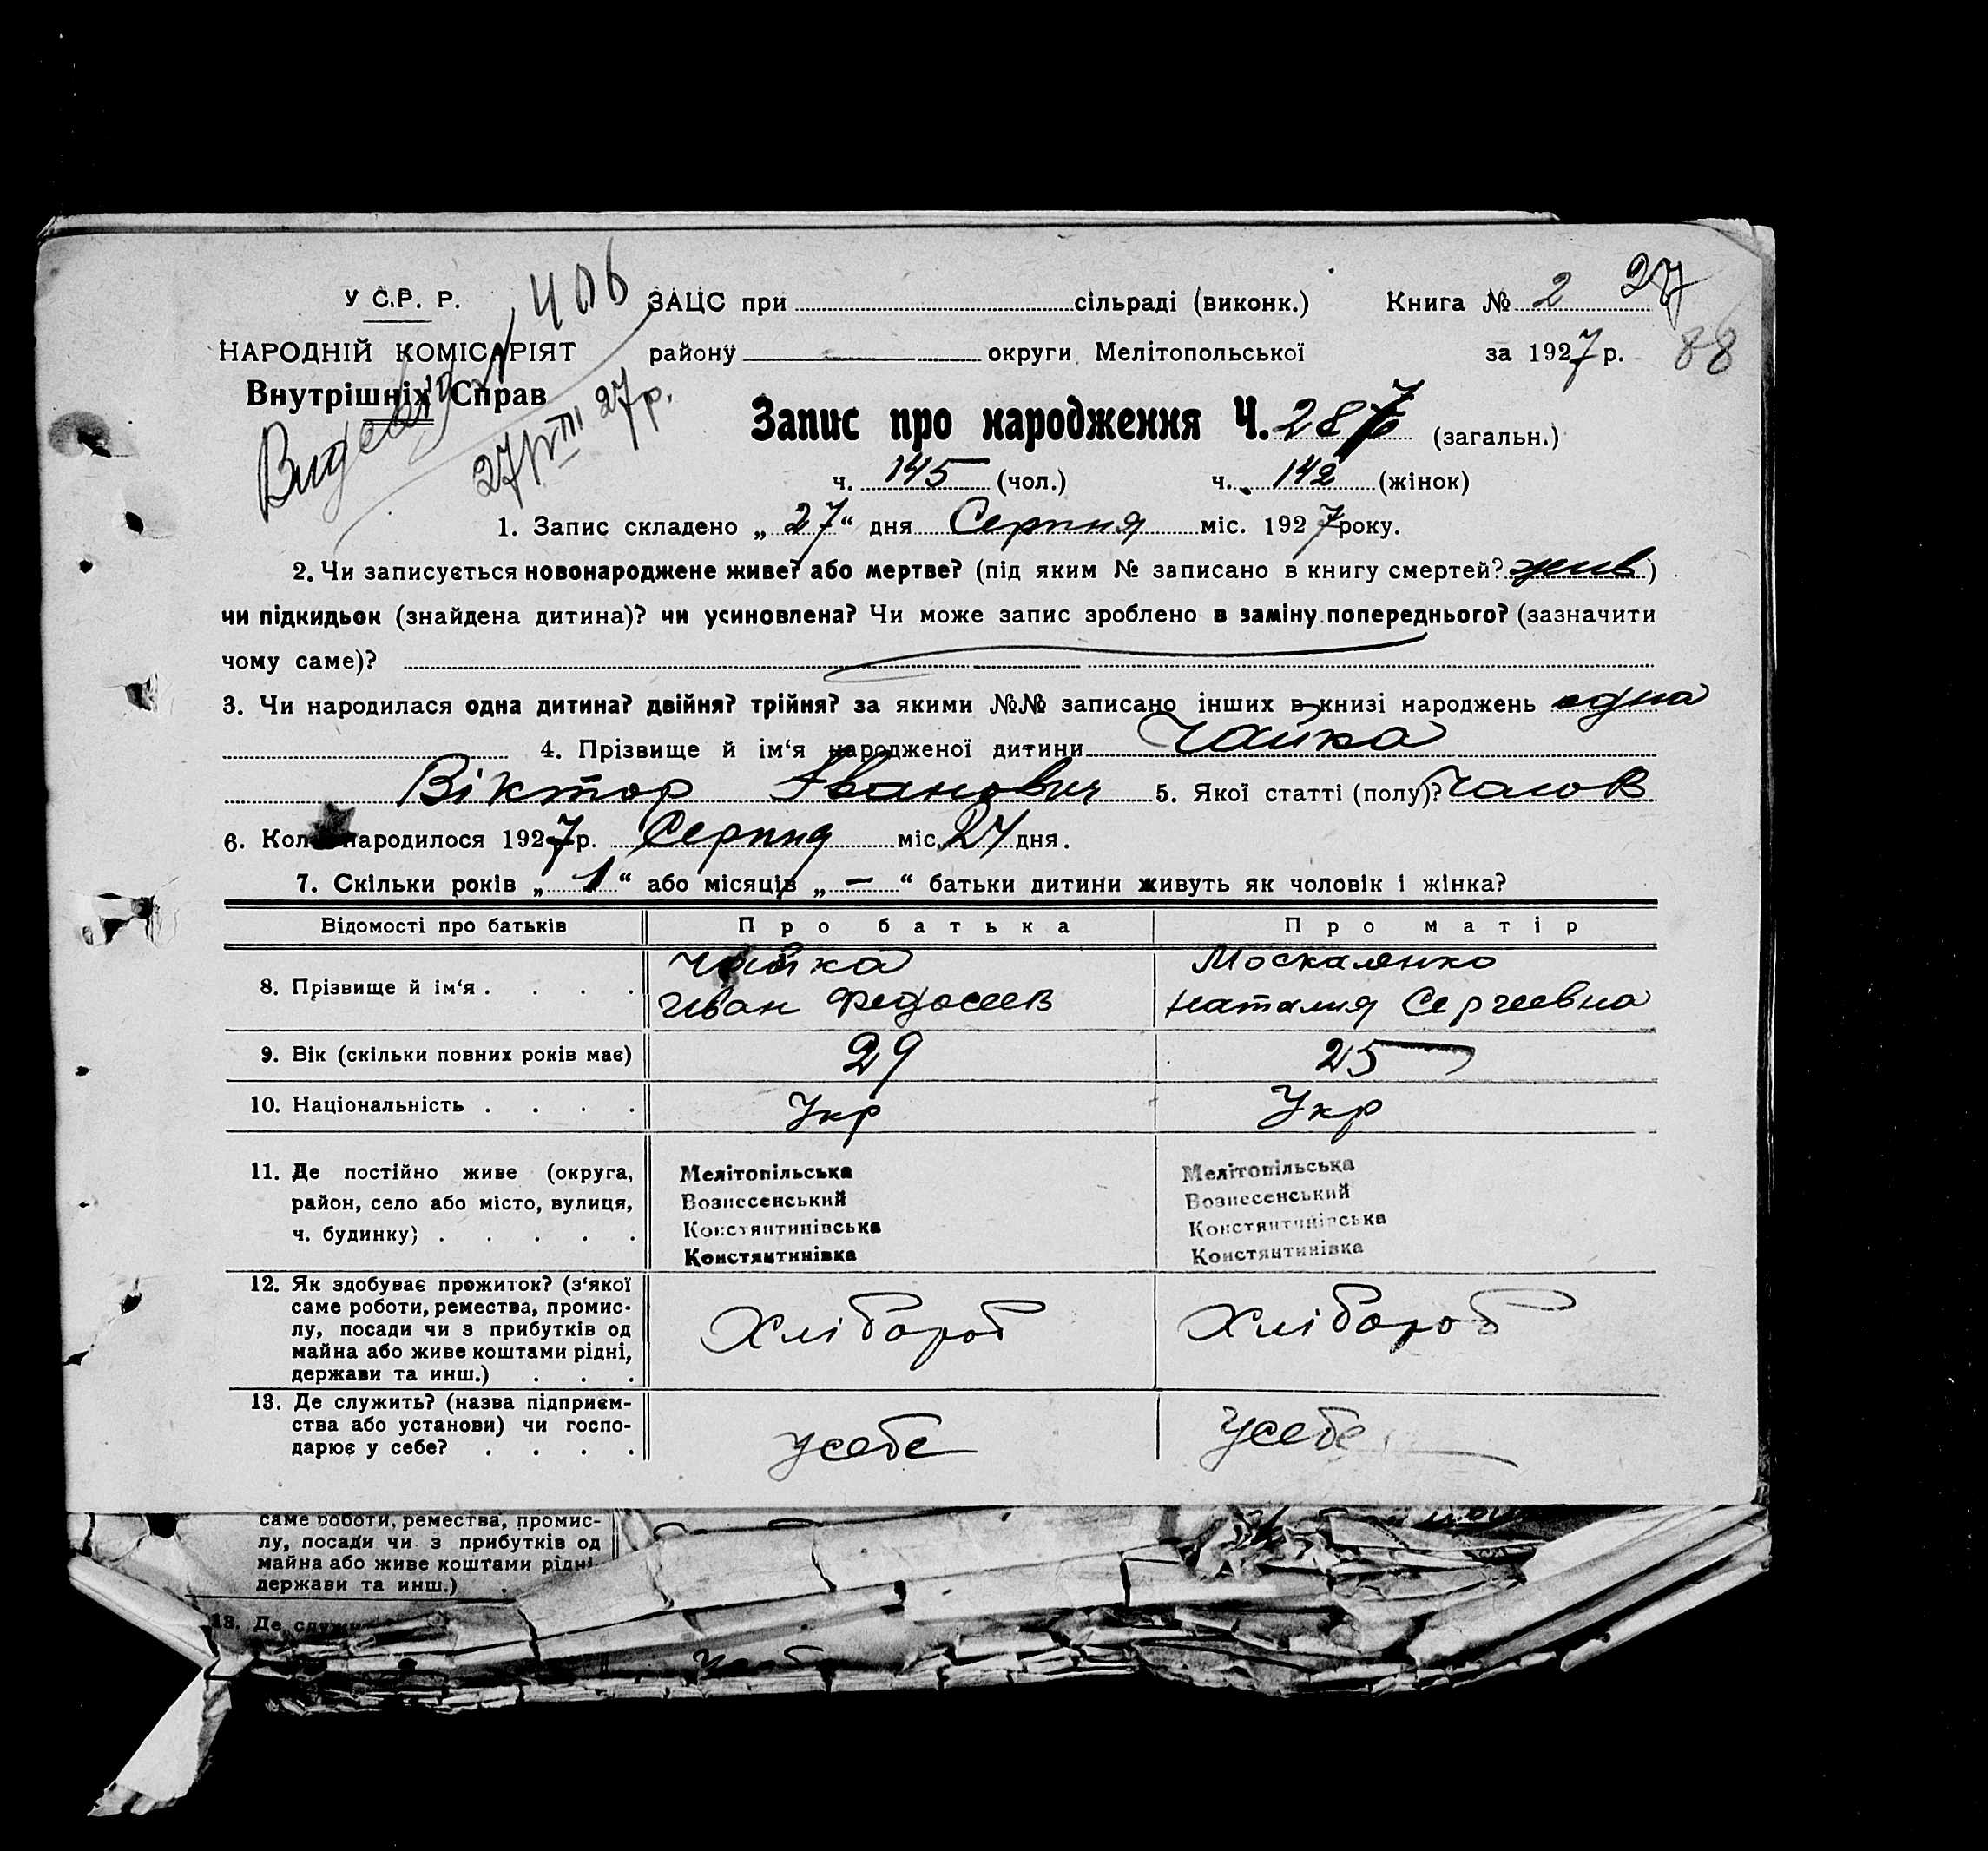 У С.Р. Р. 406 ЗАЦС при сільраді (виконк.) Книга № 2 27
НАРОДНІЙ КОМІСАРІЯТ району округи Мелітопольської за 1927 р. 88
Внутрішніх Справ
27/VIII 27 р.
Запис про народження Ч. 287 (загальн.)
ч. 145 (чол.) ч. 142 (жінок)
1. Запис складено „ 27 “ дня Серпня міс. 1927 року.
2. Чи записується новонароджене живе? або мертве? (під яким № записано в книгу смертей? жив )
чи підкидьок (знайдена дитина)? чи усиновлена? Чи може запис зроблено в заміну попереднього? (зазначити
чому саме)?
3. Чи народилася одна дитина? двійня? трійня? за якими №№ записано інших в книзі народжень одна
4. Прізвище й ім‘я народженої дитини Чайка
Віктор Іванович 5. Якої статті (полу)? Чалов
6. Коли народилося 1927 р. Серпня міс. 24 дня.
7. Скільки років „ 1 “ або місяців „ — “ батьки дитини живуть як чоловік і жінка?
Відомості про батьків Про батька Про матір
8. Прізвище й ім‘я . . . . Чайка Москаленко
Иван Федосеев Наталия Сергеевна
9. Вік (скільки повних років має) 29 25
10. Національність . . . . Укр Укр
11. Де постійно живе (округа, Мелітопільська Мелітопільська
район, село або місто, вулиця, Вознесенський Вознесенський
ч. будинку) . . . . . Констянтинівська Констянтинівська
Констянтинівка Констянтинівка
12. Як здобуває прожиток? (з‘якої
саме роботи, ремества, промис-
лу, посади чи з прибутків од Хлібороб Хлібороб
майна або живе коштами рідні,
держави та инш.) . . .
13. Де служить? (назва підприєм-
ства або установи) чи госпо- усебе усебе
дарює у себе? . . . .
саме роботи, ремества, промис-
лу, посади чи з прибутків од
майна або живе коштами рідні
держави та инш.) .
13. Де служи